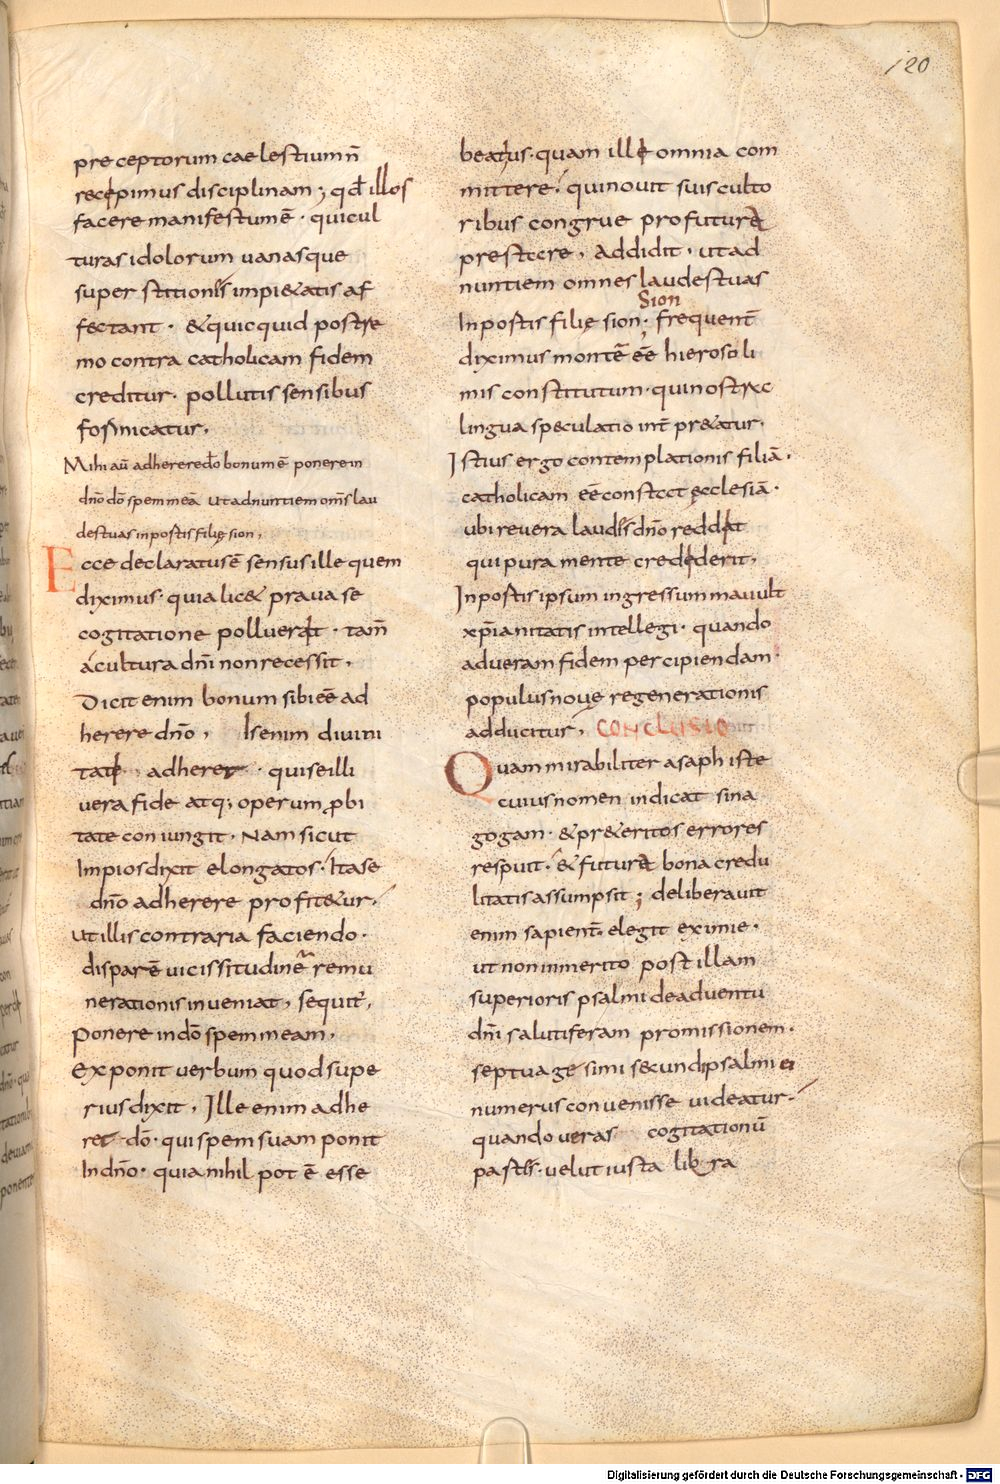 120
preceptorum caelestium n̄
recipimus disciplinam; qd̄ illos
facere manifestum ē · qui cul
turas idolorum uanasque
superstitionis impi&atis af
fectant · & quicquid postre
mo contra catholicam fidem
creditur · pollutis sensibus
fornicatur,
Mihi aū adherere dō bonum ē ponere in
dn̄o dō spem meā ut adnuntiem om̄s lau
des tuas in postis filię sion,
Ecce declaratus ē sensus ille quem
diximus · quia lic& praua se
cogitatione polluerat · tam̄
a cultura dn̄i non recessit,
Dicit enim bonum sibi eē ad
herere dn̄o, Is enim diuini
tati adheret · qui se illi
uera fide atq; operum probi
tate coniungit, Nam sicut
Impios dixit elongatos · Ita se
dn̄o adherere profit&ur,
ut illis contraria faciendo ·
disparē uicissitudinē remu
nerationis inueniat, sequit̄,
Ponere in dō spem meam,
Exponit uerbum quod supe
rius dixit, Ille enim adhe
ret dō · qui spem suam ponit
In dn̄o · quia nihil pot ē esse
beatius · quam illi omnia com
mittere, qui nouit suis culto
ribus congrue profutura
prestare, Addidit, ut ad
nuntiem omnes laudes tuas
Sion
In postis filię sion · frequent̄
diximus montē eē hierosoli
mis constitutum · qui nostra
lingua speculatio int̄ pr&atur,
Istius ergo contemplationis filiā,
catholicam eē constat ęcclesiā ·
ubi reuera laudis dn̄o reddit
qui pura mente crediderit,
In postis ipsum ingressum mauult
xp̄ianitatis intellegi · quando
ad ueram fidem percipiendam ·
populus nouę regenerationis
adducitur, CONCLUSIO
Quam mirabiliter asaph iste
cuius nomen indicat sina
gogam · & pr&eritos errores
respuit · & futura bona credu
litatis assumpsit; deliberauit
enim sapient̄ · elegit eximie ·
ut non inmerito post illam
superioris psalmi de aduentu
dn̄i salutiferam promissionem ·
septuagesimi secundi psalmi ei
numerus conuenisse uideatur ·
quando ueras cogitationū
partis · uelut iusta libra
Digitalisierung gefördert durch die Deutsche Forschungsgemeinschaft - DFG